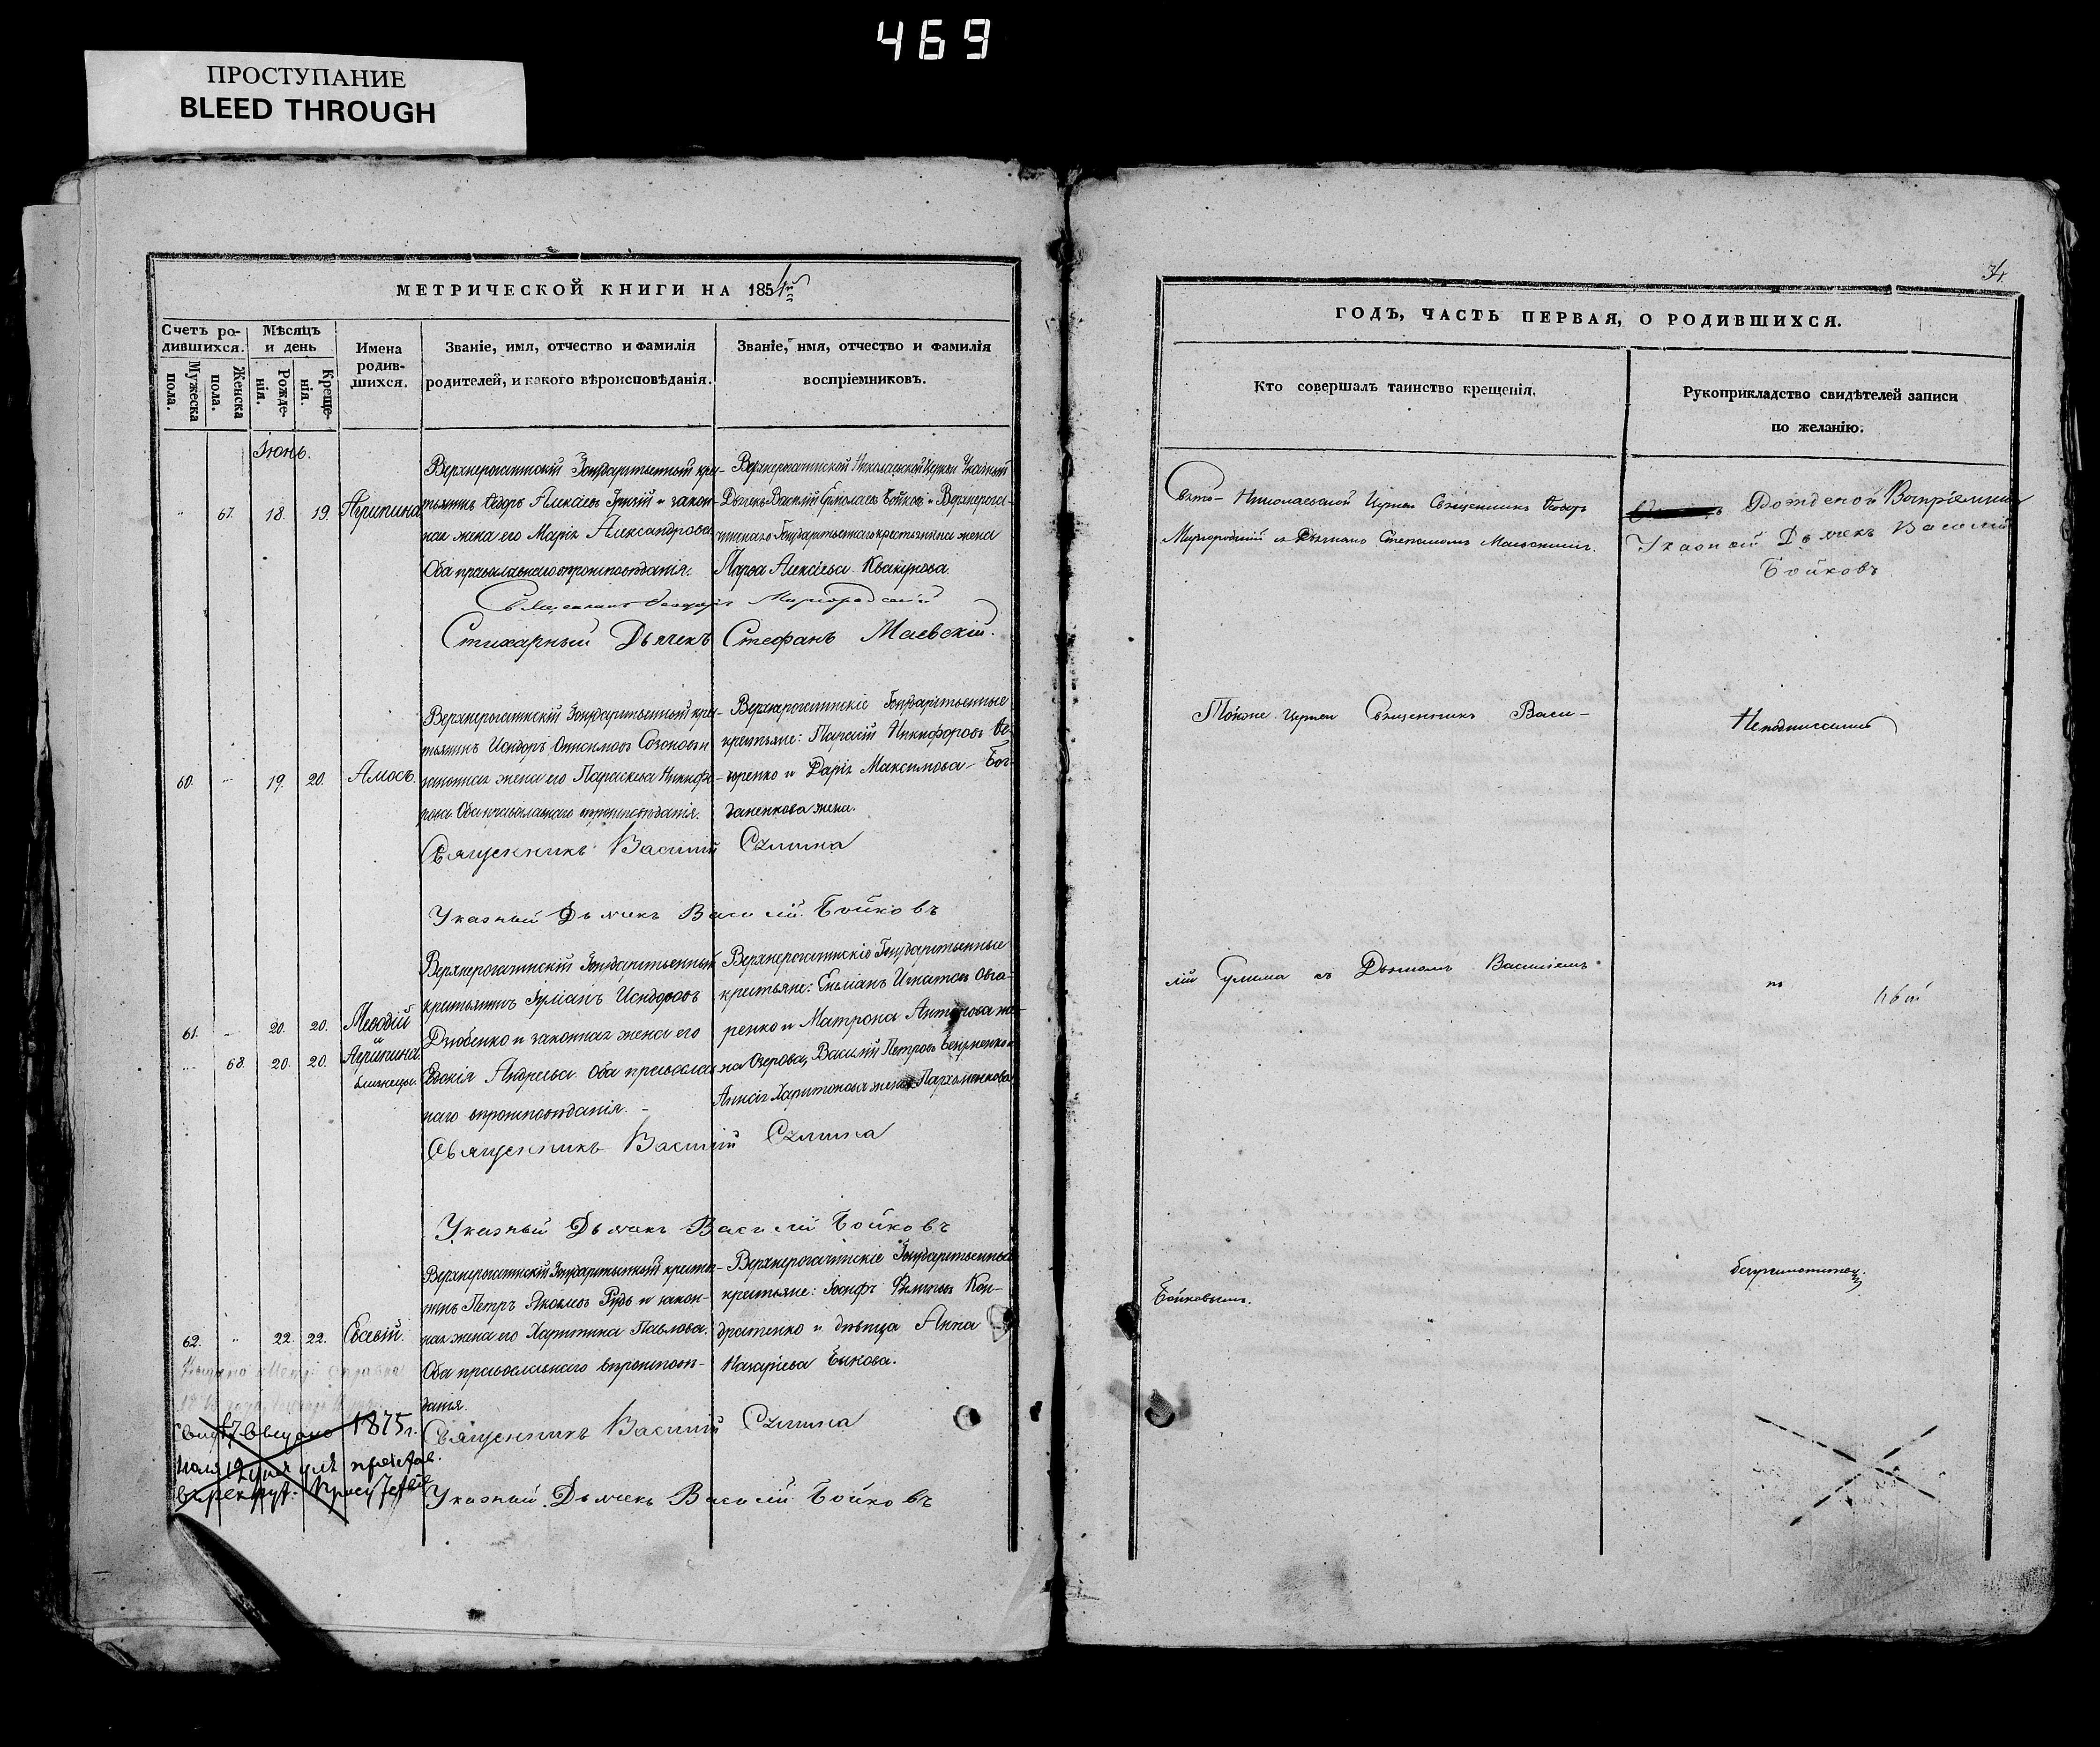 469
ПРОСТУПАНИЕ
BLEED THROUGH
МЕТРИЧЕСКОЙ КНИГИ НА 1854й
Счетъ ро-
дившихся.
Мужеска
пола.
Женска
пола.
Мѣсяцъ
и день
Рожде-
нія.
Креще-
нія.
Имена
родив-
шихся.
Званіе, имя, отчество и фамилія
родителей, и какого вѣроисповѣданія.
Званіе, имя, отчество и фамилія
воспріемниковъ.
Іюнь.
67. 18. 19. Агрипина
Верхнерогачинскій Государственный кре-
стьянинъ Ѳедоръ Алексѣевъ и закон-
ная жена его Марія Александрова
Оба православнаго вѣроисповѣданія.
Верхнерогачинской Николаевской Церкви Указный
Дьячекъ Василій Бойковъ и Верхнерога-
чинскаго Государственнаго крестьянина жена
Марѳа Алексѣева Квакунова.
Священникъ Ѳеодоръ Миргородскій
Стихарный Дьячекъ Стефанъ Маевскій.
60. 19. 20. Амосъ.
Верхнерогачинскій Государственный кре-
стьянинъ Исидоръ Онисимовъ и
законная жена его Параскева Никифо-
рова. Оба православнаго вѣроисповѣданія.
Верхнерогачинскіе Государственные
крестьяне: Никифоровъ Ѳе-
доренко и Дарія Максимова Бог-
даненкова жена.
Священникъ Василій Сулима
Указный Дьячекъ Василій Бойковъ
61. 20. 20. Меѳодій
и
68. 20. 20. Агрипина
близнецы.
Верхнерогачинскій Государственный
крестьянинъ Іуліанъ Исидоровъ
Дзюбенко и законная жена его
Евдокія Андреева. Оба православ-
наго вѣроисповѣданія.
Верхнерогачинскіе Государственные
крестьяне: Емліанъ Игнатовъ Овча-
ренко и Матрона Антонова же-
на Озерова, Василій Петровъ и
Аннаія Харитонова жена Пархоменкова
Священникъ Василій Сулима
Указный Дьячекъ Василій Бойковъ
62. 22. 22. Евсевій.
Верхнерогачинскій Государственный крестья-
нинъ Петръ Яковлевъ Рудь и закон-
ная жена его Харитина Павлова.
Оба православнаго вѣроисповѣ-
данія.
Верхнерогачинскіе Государственные
крестьяне: Іосифъ Филиповъ Кон-
дратенко и дѣвица Анна
Назаріева Быкова.
Священникъ Василій Сулима
Указный Дьячекъ Василій Бойковъ
выдано 1875г.
для представ.
34
ГОДЪ, ЧАСТЬ ПЕРВАЯ, О РОДИВШИХСЯ.
Кто совершалъ таинство крещенія.
Рукоприкладство свидѣтелей записи
по желанію.
Свято-Николаевской Церкви Священникъ Ѳеодоръ
Миргородскій съ Дьячкомъ Стефаномъ Маевскимъ.
Воспріемникъ
Указной Дьячекъ Василій
Бойковъ
Тойже Церкви Священникъ Васи-
лій Сулима съ Дьячкомъ Василіемъ
Бойковымъ.
Неподписались
по
безграмотности